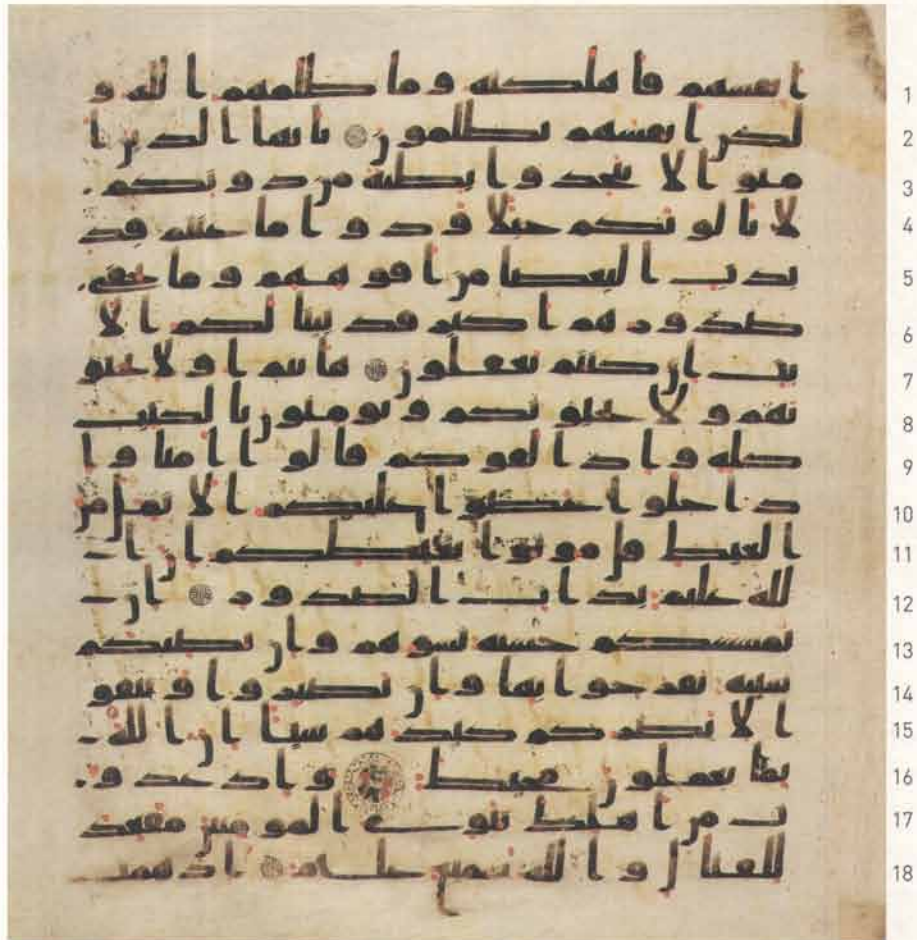 1 انفسهم فاهلكته وما ظلمهم الله و
2 لكن انفسهم يظلمون يايها الذين ا
3 منوا لا تتخذوا بطنة من دونكم
4 لا يالونكم خبلا ودوا ما عنتم قد
5 بدت البغضا من افوههم وما تخفى
6 صدورهم اكبر قد بينا لكم الا
7 يت ان كنتم تعقلون هانتم اولا تحبو
8 نهم ولا يحبونكم وتومنون بالكتب
9 كله واذا لقوكم قالوا امنا وا
10 ذا خلوا عضوا عليكم الانمل من
11 الغيظ قل موتوا بغيظكم ان ا
12 لله عليم بذات الصدور ان
13 تمسسكم حسنه تسوهم وان تصبكم
14 سيه يفرحوا بها وان تصبروا وتتقو
15 ا لا يضركم كيدهم شيا ان الله
16 بما يعملون محيط واذ غدو
17 ت من اهلك تبوى المومنين مقعد
18 للقتال والله سميع عليم اذ همت